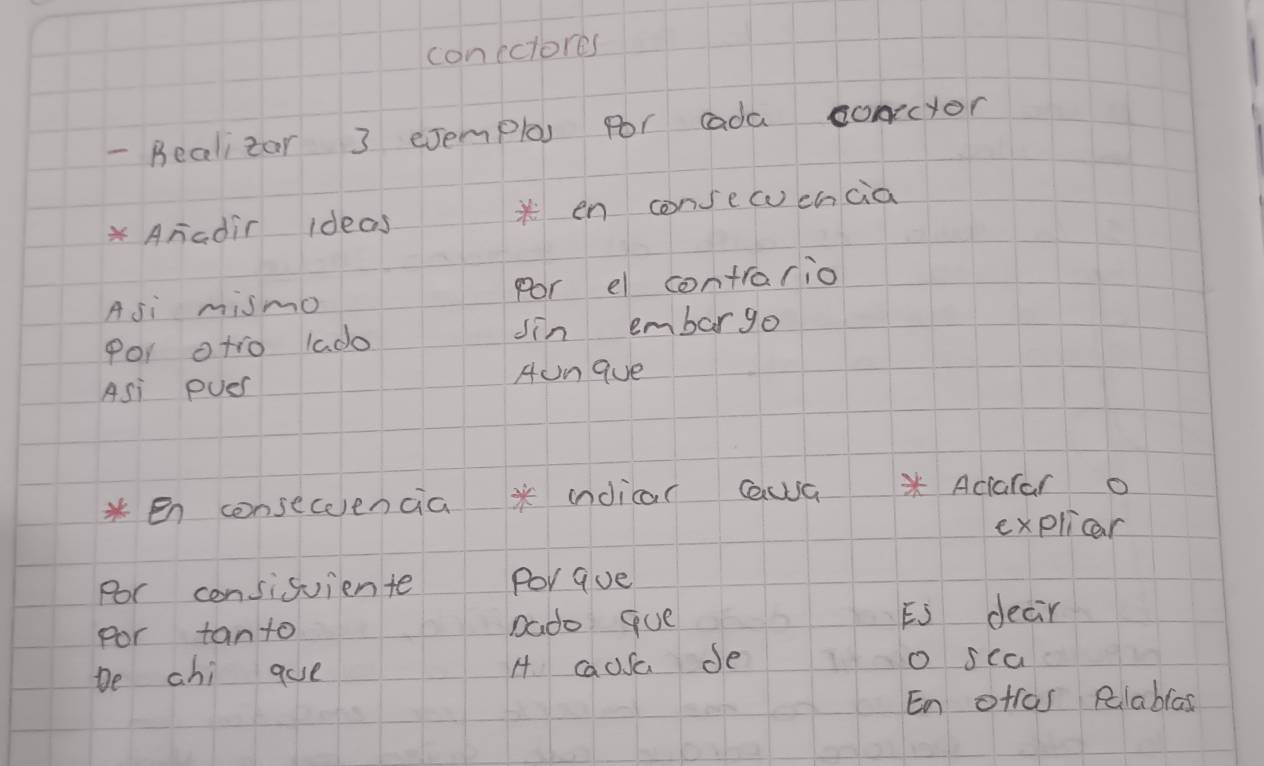 conectores
- Realizar 3 ejemplos por cada conector
* Añadir ideas
Asi mismo
Por otro lado
Asi pues
* en consecuencia
Por el contrario
sin embargo
Aunque
* En consecuencia
Por consiguiente
Por tanto
De ahi que
* indicar causa
Por que
Dado que
A causa de
* Aclarar o
explicar
Es decir
o sea
En otras Palabras